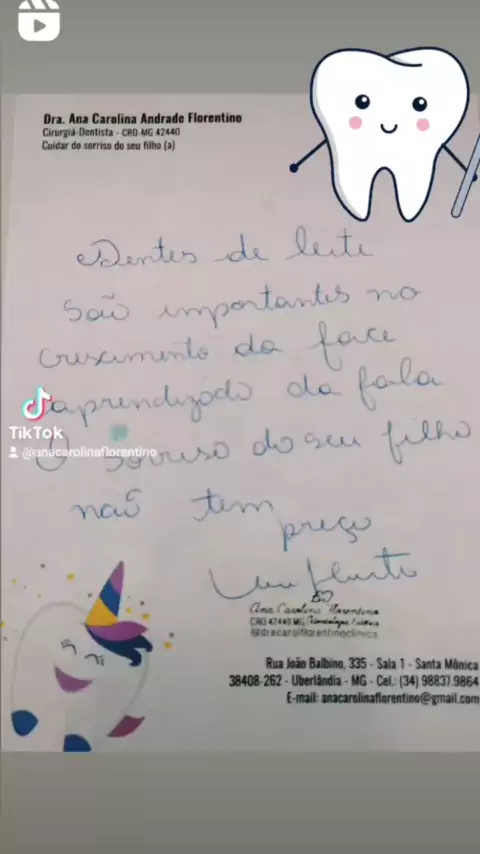 Dra. Ana Carolina Andrade Florentino
Cirurgiã-Dentista - CRO-MG 42440
Cuidar do sorriso do seu filho (a)
Dentes de leite
são importantes no
crescimento da face
aprendizado da fala
O sorriso do seu filho
não tem
preço
TikTok
@anacarolinaflorentino
Ana Carolina Florentino
CRO 42440 MG
@dracarolflorentinoclinica
Rua João Balbino, 335 - Sala 1 - Santa Mônica
38408-262 - Uberlândia - MG - Cel.: (34) 98837.9864
E-mail: anacarolinaflorentino@gmail.com